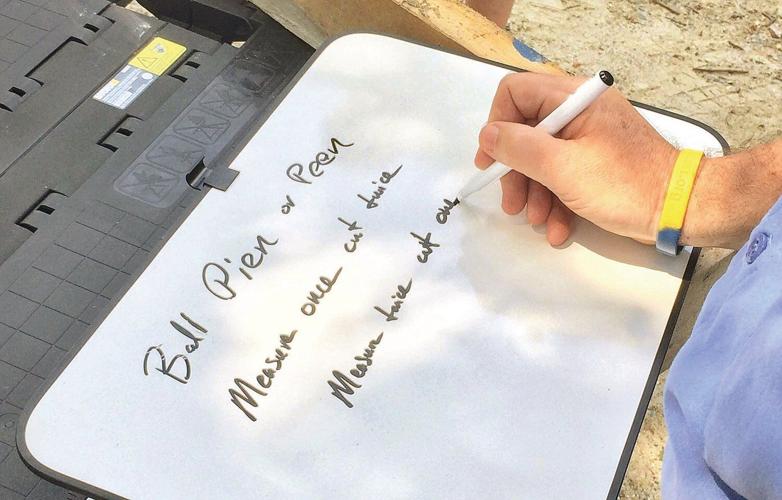 Ball Pien or Peen
Measure once cut twice
Measure twice cut on